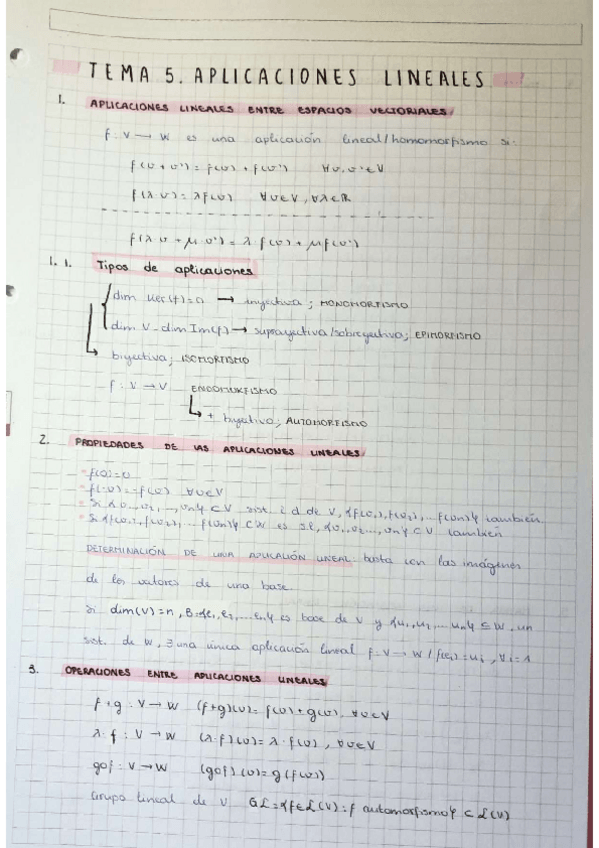 TEMA 5. APLICACIONES LINEALES
1. APLICACIONES LINEALES ENTRE ESPACIOS VECTORIALES
f: V → W es una aplicación lineal/homomorfismo si:
f(v + v') = f(v) + f(v') ∀v,v'∈V
f(λv) = λf(v) ∀v∈V, ∀λ∈ℝ
f(λv + μv') = λ·f(v) + μf(v')
1.1. Tipos de aplicaciones
dim Ker(f)=0 → inyectiva; MONOMORFISMO
dim V - dim Im(f) → suprayectiva/sobreyectiva; EPIMORFISMO
biyectiva; ISOMORFISMO
f: V → V ENDOMORFISMO
+ biyectivo; AUTOMORFISMO
2. PROPIEDADES DE LAS APLICACIONES LINEALES
f(0)=0
f(-v)=-f(v) ∀v∈V
Si {v1, v2, ..., vn} ⊂ V sist. l.d de V, {f(v1), f(v2), ... f(vn)} también.
Si {f(v1), f(v2), ... f(vn)} ⊂ W es s.l, {v1, v2 ..., vn} ⊂ V también
DETERMINACIÓN DE UNA APLICACIÓN LINEAL: basta con las imágenes
de los valores de una base.
Si dim(V)=n, B={e1, e2, ... en} es base de V y {u1, u2, ... un} ⊆ W, un
sist. de W, ∃ una única aplicación lineal f: V → W / f(ei)=ui, ∀i=1
3. OPERACIONES ENTRE APLICACIONES LINEALES
f+g: V → W (f+g)(v)= f(v)+g(v), ∀v∈V
λ·f: V → W (λ·f)(v)= λ·f(v), ∀v∈V
gof: V → W (gof)(v)=g(f(v))
Grupo lineal de V GL={f∈L(V):f automorfismo} ⊂ L(V)